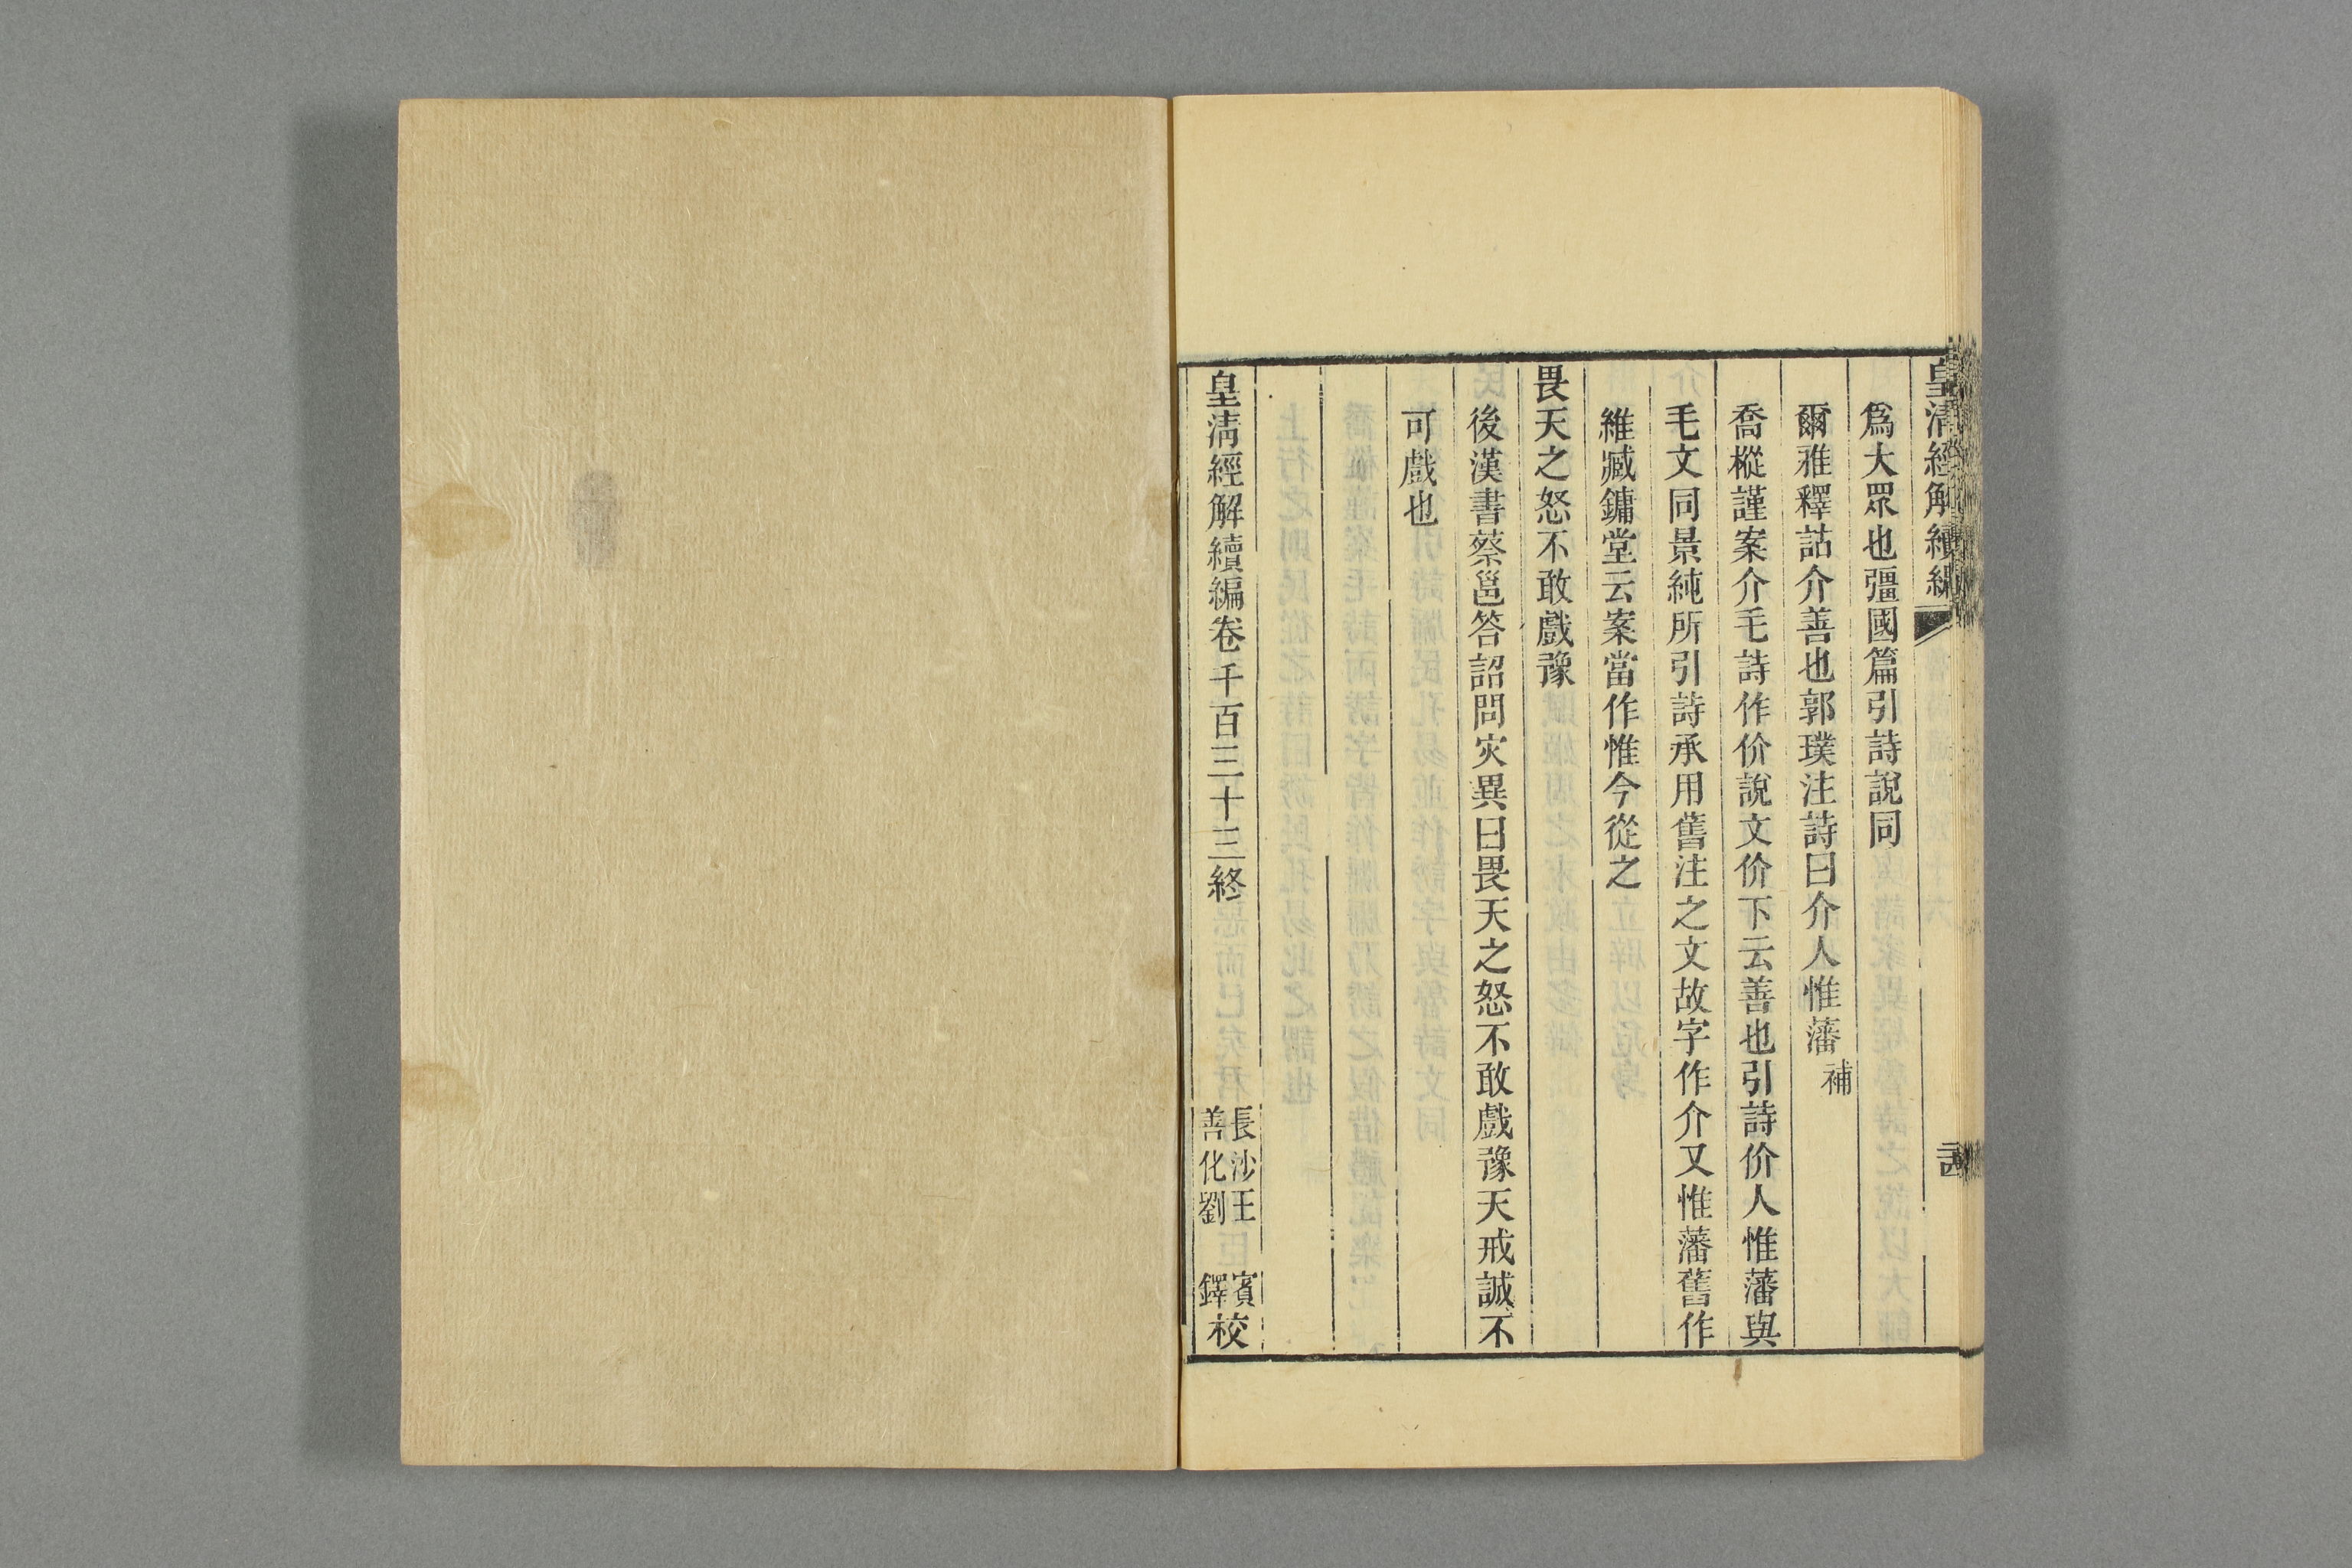 皇清經解續編
爲大眾也彊國篇引詩說同
爾雅釋詁介善也郭璞注詩曰介人惟藩補
喬樅謹案介毛詩作价說文价下云善也引詩价人惟藩與
毛文同景純所引詩承用舊注之文故字作介又惟藩舊作
維臧鏞堂云案當作惟今從之
畏天之怒不敢戲豫
後漢書蔡邕答詔問灾異曰畏天之怒不敢戲豫天戒誠不
可戲也
皇清經解續編卷千百三十三終
長沙王賓
善化劉鐸校